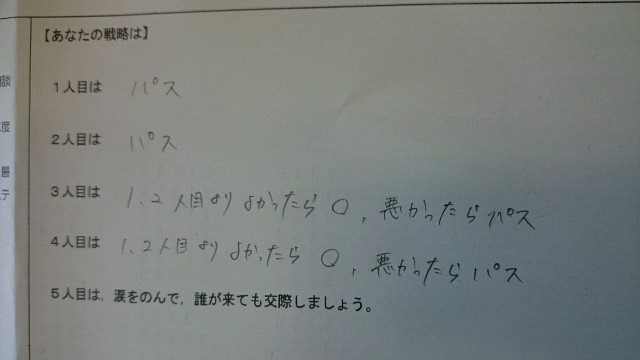 【あなたの戦略は】
1人目は パス
2人目は パス
3人目は 1、2人目より よかったら ○, 悪かったら パス
4人目は 1、2人目より よかったら ○, 悪かったら パス
5人目は,涙をのんで,誰が来ても交際しましょう。
談
度
最
テ